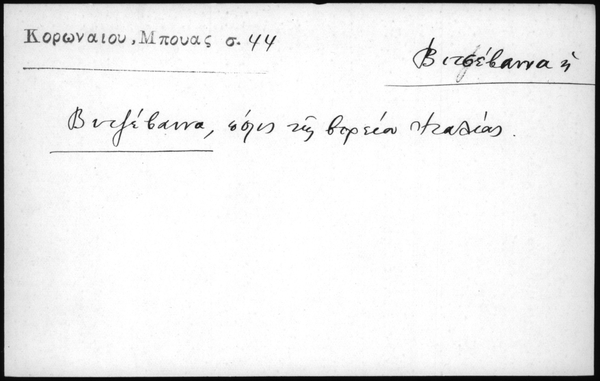 Κορωναιου, Μπουας σ. 44
Βιτζέβαννα ἡ
Βιτζέβαννα, πόλις τῆς βορείου Ἰταλίας.